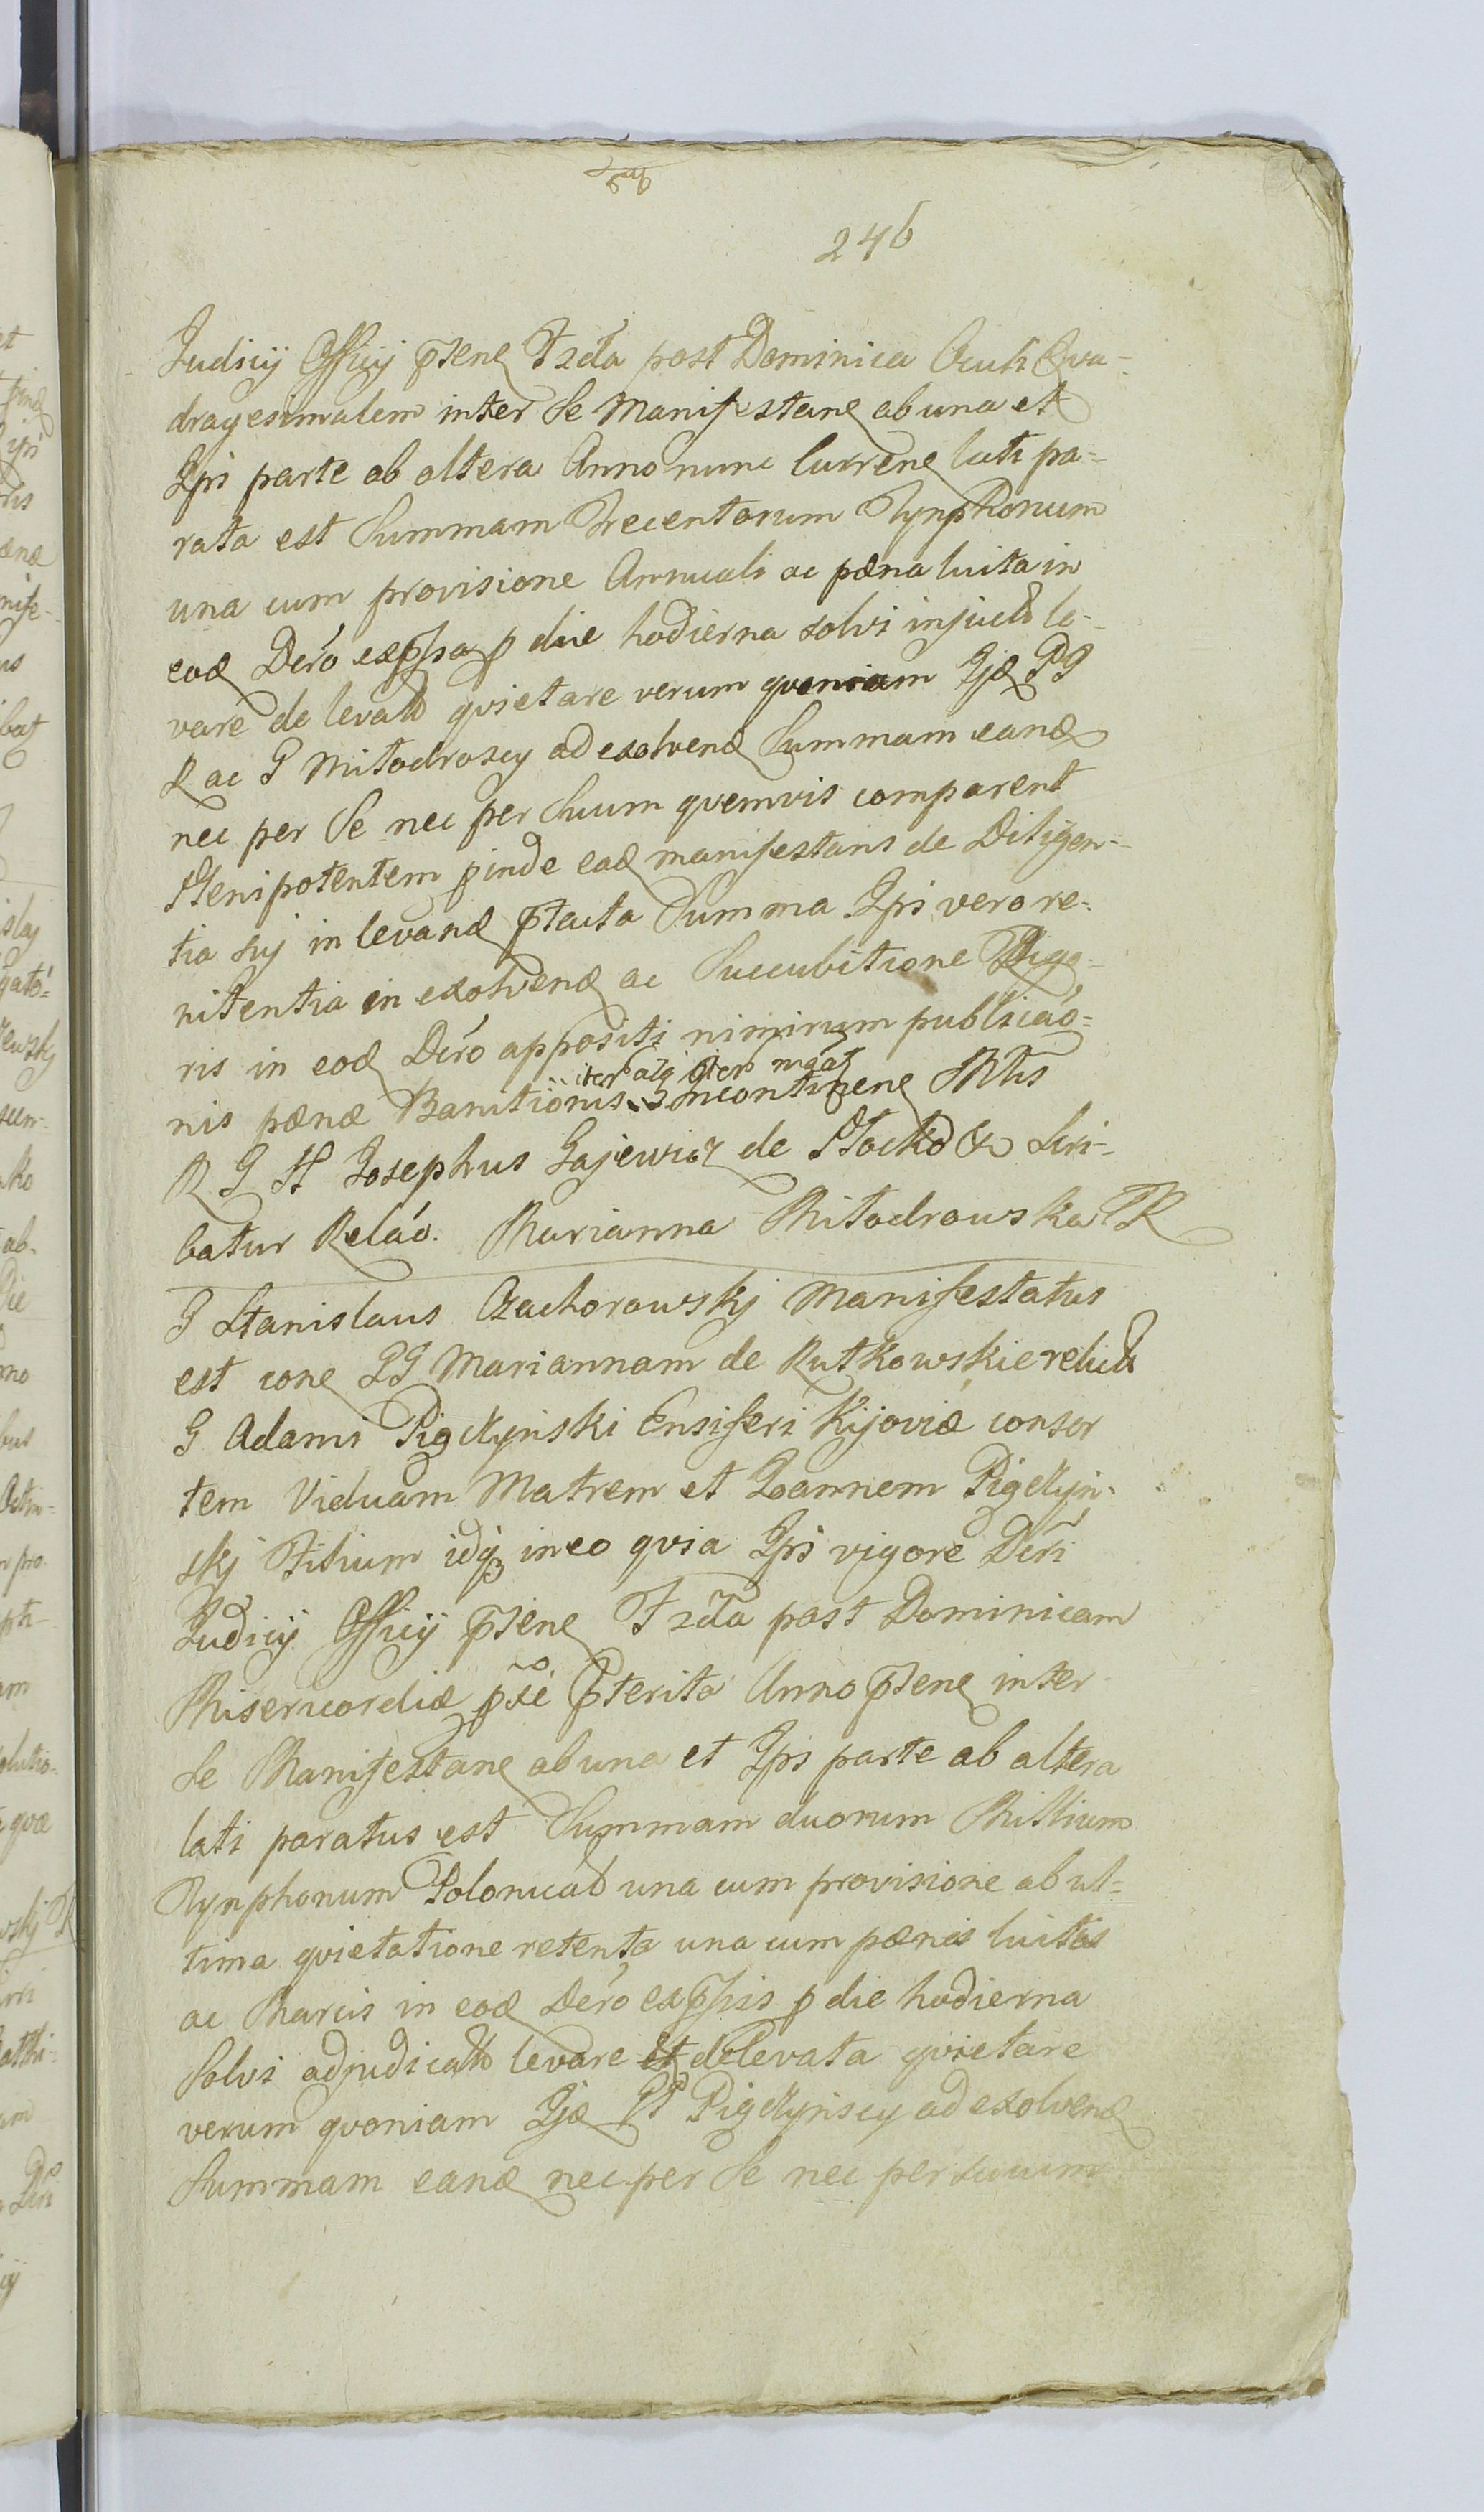 246
Judicij Officij pstenę F 2da post Dominica Oculi Qva-
dragesimalem inter se Manifestanę ab una et
Ipsi parte ab altera Anno nunc Currenę lati pa-
rata est Summam Trecentorum Tynphonum
una cum provisione Annuali ac pæna luita in
eodę Dero expssa p die hodierna solvi injuctã le-
vare de levatã qvietare verum qvoniam Ijdę PP
R ac G Mitodroscy ad exolvendę Summam eandę
nec per se nec per Suum qvemvis comparent
Plenipotentem pinde eadę manifestans de Diligen-
tia sij in levandę pstacta Summa Ipsi vero re-
nitentia in exolvendę ac Succubitione Rigo-
ris in eodę Dero appositi nimirum publicáo-
nis pænæ Banitionis incontinenę
iter atq iter mãat
R G H Josephus Gajewicz de Płocko &c Scri-
batur Reláo. Marianna Mitodrowska R
G Stanislaus Czachorowskj Manifestatus
est conę GG Mariannam de Rutkowskie relictã
G Adami Pigdłyński Ensiferi Kijoviæ consor
tem Viduam Matrem et Joannem Pigdłyn-
skj Filium idqз in eo qvia Ipsi vigore Dcri
Judicij Officij pstenę F 2da post Dominicam
Misericordiæ pxe pterita Anno pstenę inter
se Manifestanę ab una et Ipsi parte ab altera
lati paratus est Summam duorum Millium
Tynphonum Polonicalã una cum provisione ab ul-
tima qvietatione retenta una cum pænis luitis
ac Marcis in eodę Dero expssis p die hodierna
Solvi adjudicatã levare et de levata qvietare
verum qvoniam Ijdę PP Pigdłyńscy ad exolvendę
Summam eandę nec per Se nec per suum